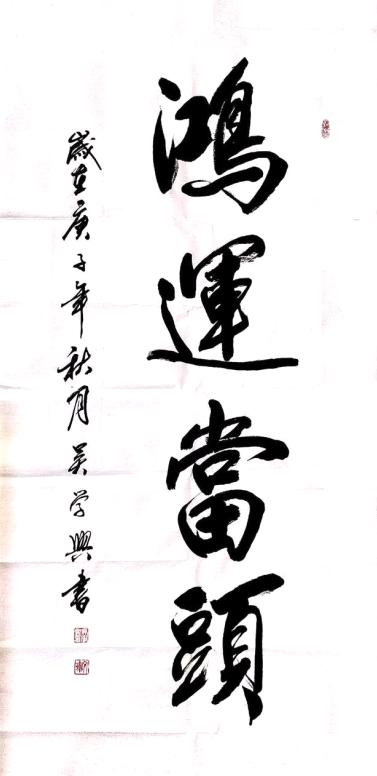 鴻運當頭
歲在庚子年秋月吴学興書